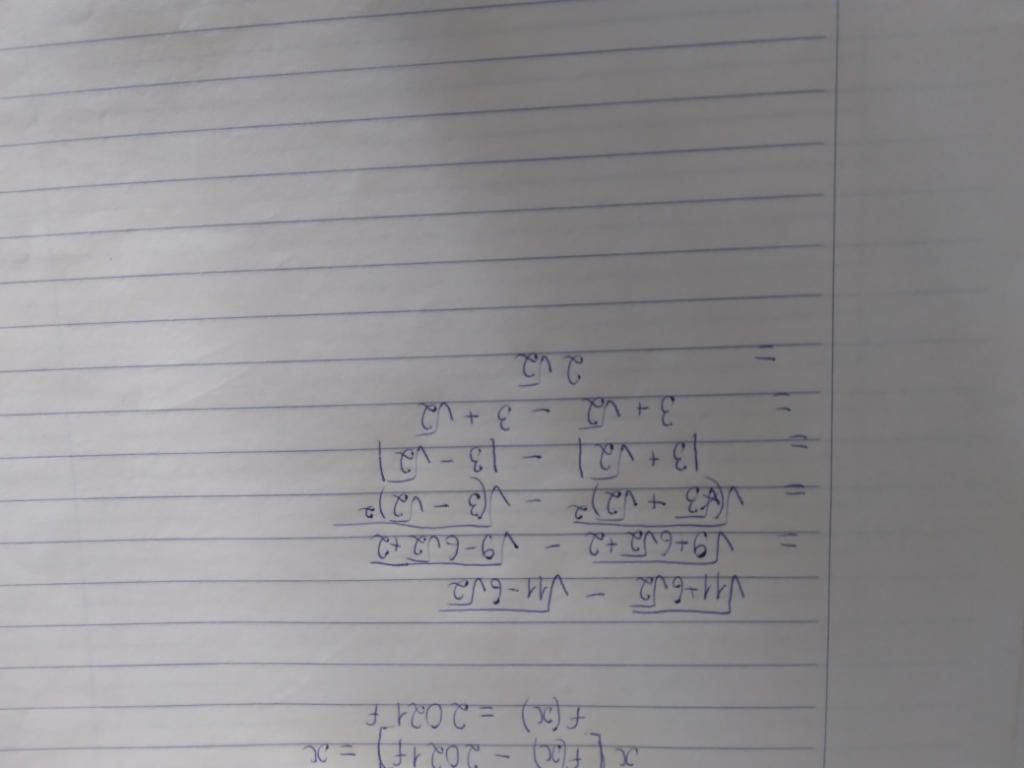 x[f(x) - 2021f] = x
f(x) = 2021f
√11+6√2 - √11-6√2
= √9+6√2+2 - √9-6√2+2
= √(√3 + √2)² - √(3 - √2)²
= |3 + √2| - |3 - √2|
= 3 + √2 - 3 + √2
= 2√2